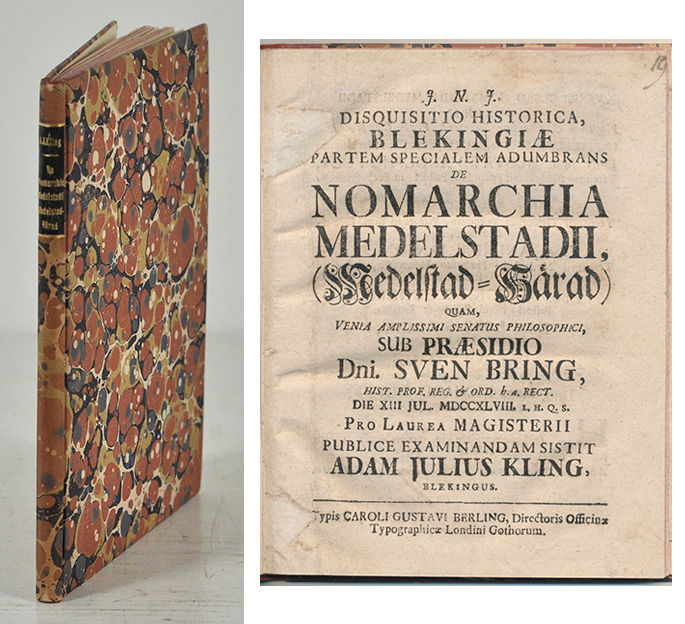 A.J.Kling
De
Nomarchia
Medelstadii
Medelstad-
Härad
19
J. N. J.
DISQUISITIO HISTORICA,
BLEKINGIÆ
PARTEM SPECIALEM ADUMBRANS
DE
NOMARCHIA
MEDELSTADII,
(Medelstad=Härad)
QUAM,
VENIA AMPLISSIMI SENATUS PHILOSOPHICI,
SUB PRÆSIDIO
Dni. SVEN BRING,
HIST. PROF. REG. & ORD. h. a. RECT.
DIE XIII JUL. MDCCXLVIII. L. H. Q. S.
PRO LAUREA MAGISTERII
PUBLICE EXAMINANDAM SISTIT
ADAM JULIUS KLING,
BLEKINGUS.
Typis CAROLI GUSTAVI BERLING, Directoris Officinæ
Typographicæ Londini Gothorum.